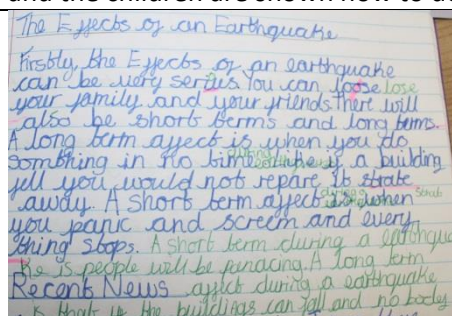 The Effects of an Earthquake
Firstly, the Effects of an earthquake
can be very serius You can loose lose
your family and your friends. There will
also be short terms and long terms.
A long term affect is when you do
somthing in no time like if a building
fell you would not repare it strate
away. A short term affect is when
you panic and screem and every
thing stops. A short term during a earthqua
ke is people will be panacing. A long term
Recent News affect during a earthquake
is that if the buildings can fall and no bodey